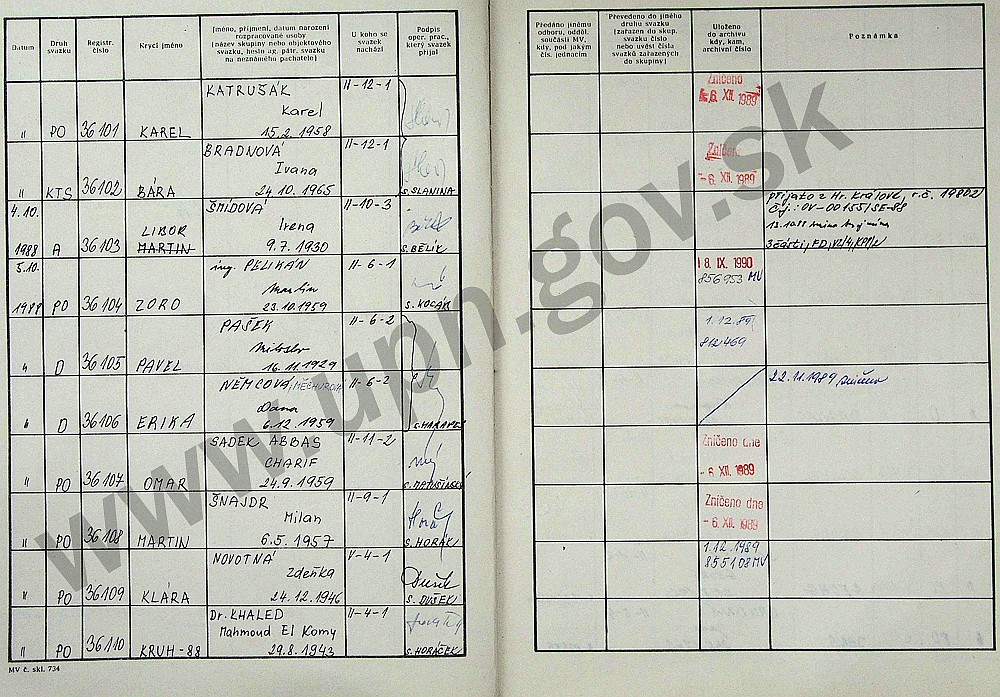 Datum
Druh svazku
Registr. číslo
Krycí jméno
Jméno, příjmení, datum narození
rozpracované osoby
(název skupiny nebo objektového
svazku, heslo ag. pátr. svazku
na neznámého pachatele)
U koho se
svazek
nachází
Podpis
oper. prac.,
který svazek
přijal
Předáno jinému
odboru, odděl.
součásti MV,
kdy, pod jakým
čís. jednacím
Převedeno do jiného
druhu svazku
(zařazen do skup.
svazku číslo
nebo uvést čísla
svazků zařazených
do skupiny)
Uloženo
do archivu
kdy, kam,
archivní číslo
Poznámka
KATRUŠÁK II-12-1
Karel
" PO 36101 KAREL 15.2.1958
Zničeno
-6. XII. 1989
BRADNOVÁ II-12-1
Ivana
" KTS 36102 BÁRA 24.10.1965 S. SLANINA
Zničeno
-6. XII. 1989
4.10. ŠMÍDOVÁ II-10-3
LIBOR Irena
1988 A 36103 MARTIN 9.7.1930 S. BĚLÍK
přijato z Hr. Králové, r.č. 19802
čj.: OV-00155/SE-88
5.10. ing. PELIKÁN II-6-1
Martin
1988 PO 36104 ZORO 23.10.1959 S. KOCÁK
18. IX. 1990
856953 MV
PAŠEK II-6-2
Miloslav
" D 36105 PAVEL 16.11.1929
1.12.89
812469
NĚMCOVÁ, MĚCHUROVÁ II-6-2
Dana
" D 36106 ERIKA 6.12.1959
22.11.1989 zničeno
SADEK ABBAS II-11-2
CHARIF
" PO 36107 OMAR 24.9.1959 S. MATUŠINSKÝ
Zničeno dne
-6. XII. 1989
ŠNAJDR II-9-1
Milan
" PO 36108 MARTIN 6.5.1957 S. HORÁK
Zničeno dne
-6. XII. 1989
NOVOTNÁ V-4-1
Zdeňka
" PO 36109 KLÁRA 24.12.1946 S. DUŠEK
1.12.1989
855108 MV
Dr. KHALED II-4-1
Mahmoud El Komy
" PO 36110 KRUH-88 29.8.1943 S. HORÁČEK
MV č. skl. 734
www.upn.gov.sk